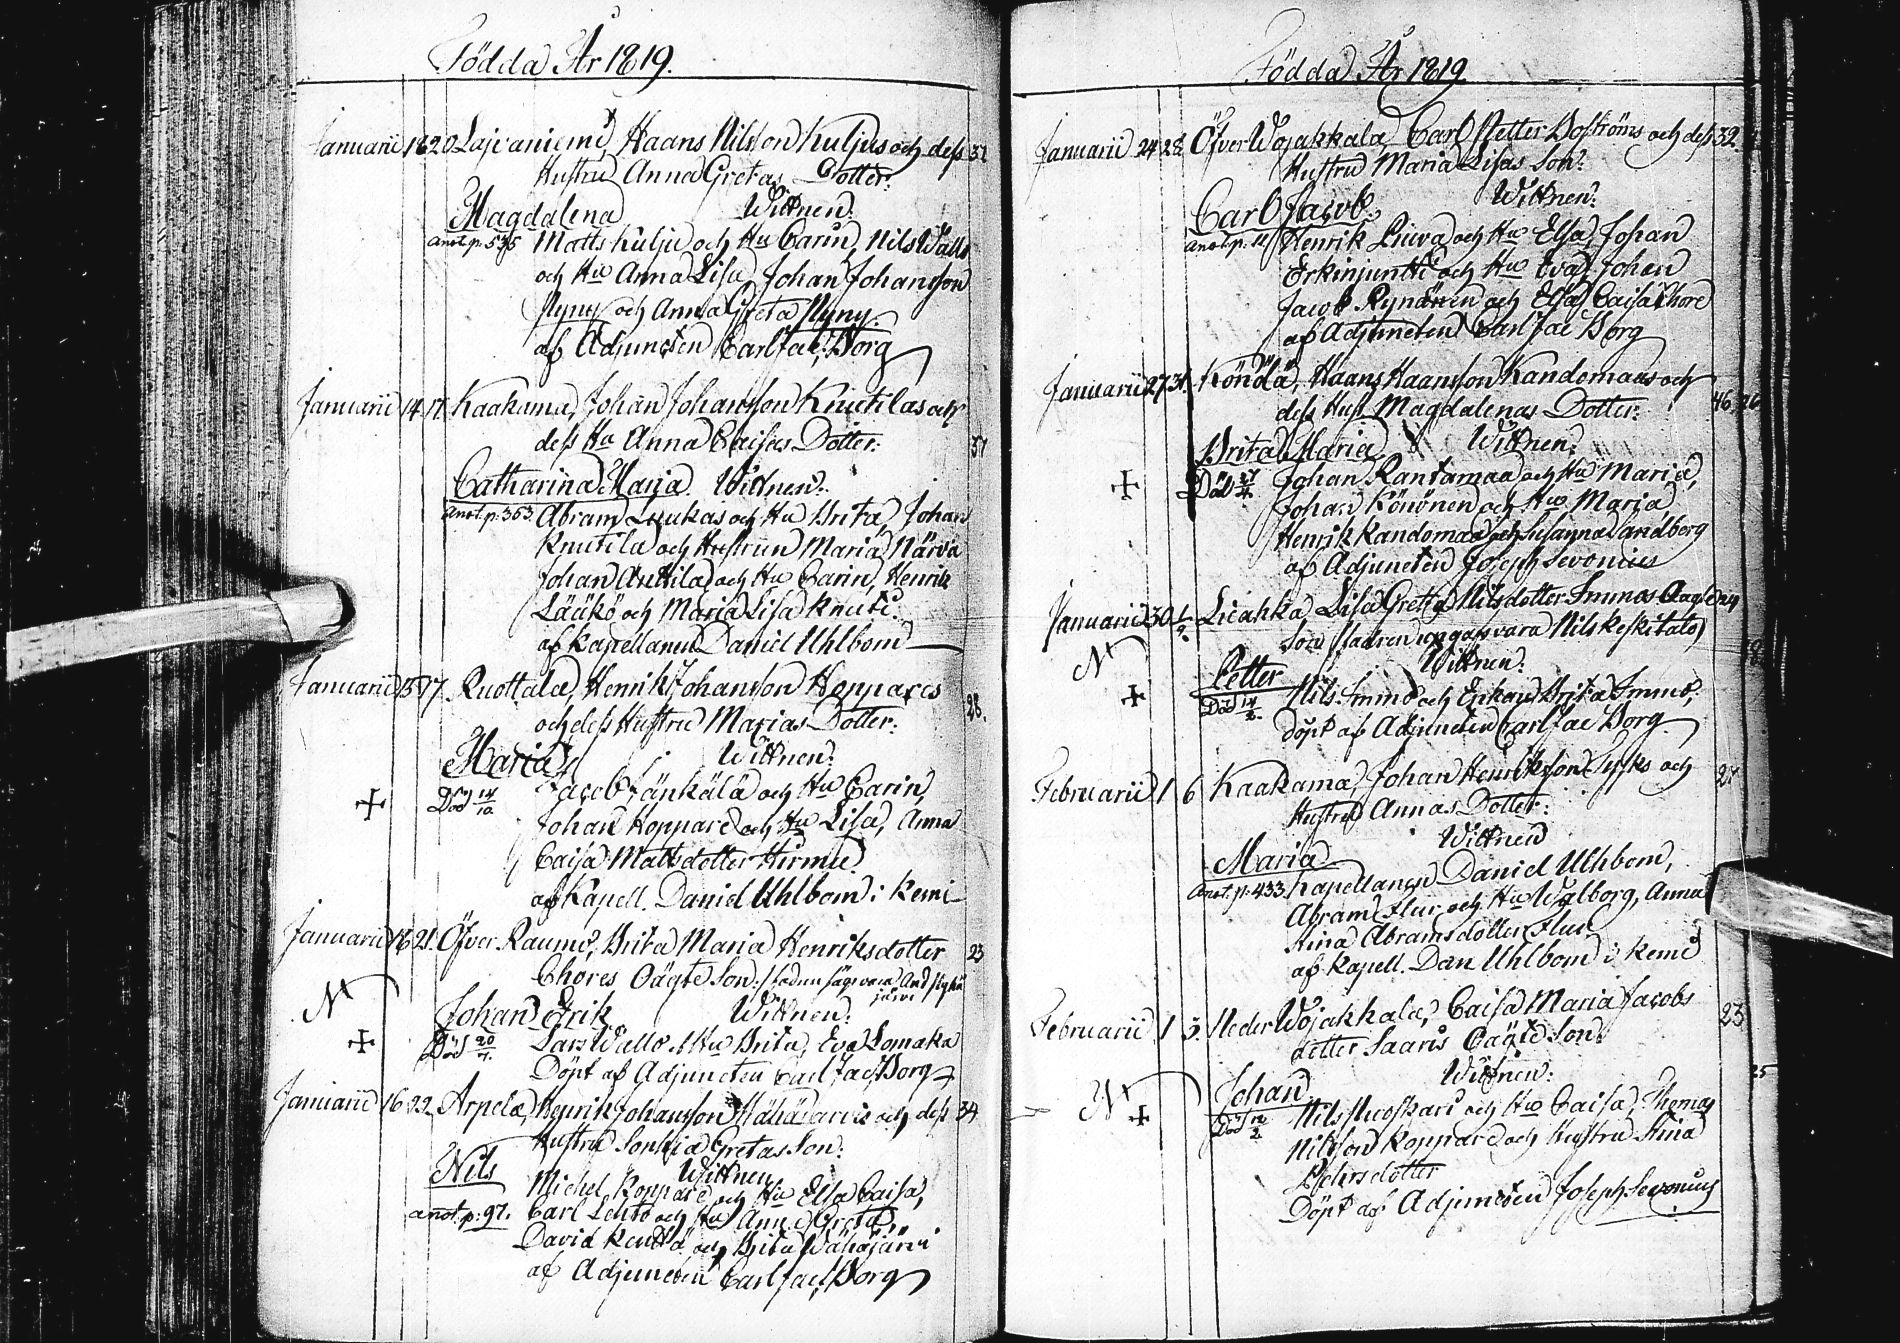 Födda År 1819.
Januarii 16 20 Lajvaniemi Haans Nilsson Kuljus och dess 32
Hustru Anna Gretas Dotter:
Magdalena Wittnen:
anot. p. Matts Kulju och Hu Carin, Nils Wallo
och Hu Anna Lisa, Johan Johansson
Nyny och Anna Greta Nyny.
af Adjuncten Carl Jac. Borg
Januarii 14 17. Kaakama, Johan Johansson Knutilas och
dess Hu Anna Caisas Dotter: 37
Catharina Maria Wittnen:
Anot. p. 363. Abram Lukas och Hu Brita, Johan
Knutila och Hustrun Maria, Närvä
Johan Anttila och Hu Carin, Henrik
Läükö och Maria Lisa Knuti.
af Kapellanen Daniel Uhlbom
Januarii 15 17. Ruottala, Henrik Johansson Koppares 28.
och dess Hustru Marias Dotter:
Maria Wittnen:
Död 14/10. Jacob Jänkälä och Hu Carin,
Johan Koppare och Hu Lisa, Anna
Caisa Mattsdotter Hirmu.
af Kapell. Daniel Uhlbom i Kemi
Januarii 16 21. Öfver Raumo, Brita Maria Henriksdotter 23
Chores Oägte Son.
N
Johan Erik Wittnen:
Död 20/7. Lars Wallo Hu Brita, Eva Lomaka
Döpt af Adjuncten Carl Jac. Borg
Januarii 16 22 Arpela, Henrik Johansson Wähäjärvis och dess 34
Hustru Sophia Gretas Son:
Nils Wittnen
anot. p. 97. Michel Koppare och Hu Elsa Caisa,
Carl Lehto och Hu Anna Greta,
David Kenttä och Brita Wähäjärvi
af Adjuncten Carl Jac. Borg
Födda År 1819
Januarii 24 28 Öfver Wojakkala Carl Petter Boströms och dess 32.
Hustru Maria Lisas Son:
Carl Jacob Wittnen:
anot. p. Henrik Liiva och Hu Elsa, Johan
Erkinjuntti och Hu Eva, Johan
Jacob Rynänen och Elsa Caisa Chore
af Adjuncten Carl Jac Borg
Januarii 27 31. Könölä, Haans Haansson Kandomaas och
dess Hust. Magdalenas Dotter: 46
Brita Maria Wittnen:
Död 27/4. Johan Rantamaa och Hu Maria,
Johan Könönen och Hu Maria
Henrik Kandomaa och Susanna Sandberg
af Adjuncten Joseph Sevonius
Januarii 30 1/2 Liedhka Lisa Greta Nilsdotter Immos Oägte
Son fadren uppgafs vara Nils Keskitalo
N
Petter Wittnen:
Död 14/2. Nils Immo och Enkan Brita Immo,
döpt af Adjuncten Carl Jac Borg
Februarii 1 6 Kaakama, Johan Henriksson Sysks och 27
Hustru Annas Dotter:
Wittnen
Maria
anot. p. 433. Kapellanen Daniel Uhlbom,
Abram Flur och Hu Walborg, Anna
Stina Abramsdotter Flur
af Kapell. Dan Uhlbom i Kemi
Februarii 1 5. Neder Wojakkala, Caisa Maria Jacobs 23
dotter Saaris Oägte Son:
Wittnen:
N
Johan
Död 12/2 Nils Nuoskari och Hu Caisa, Thomas
Nilsson Koppare och Hustru Stina
Pehrsdotter
Döpt af Adjuncten Joseph Sevonius